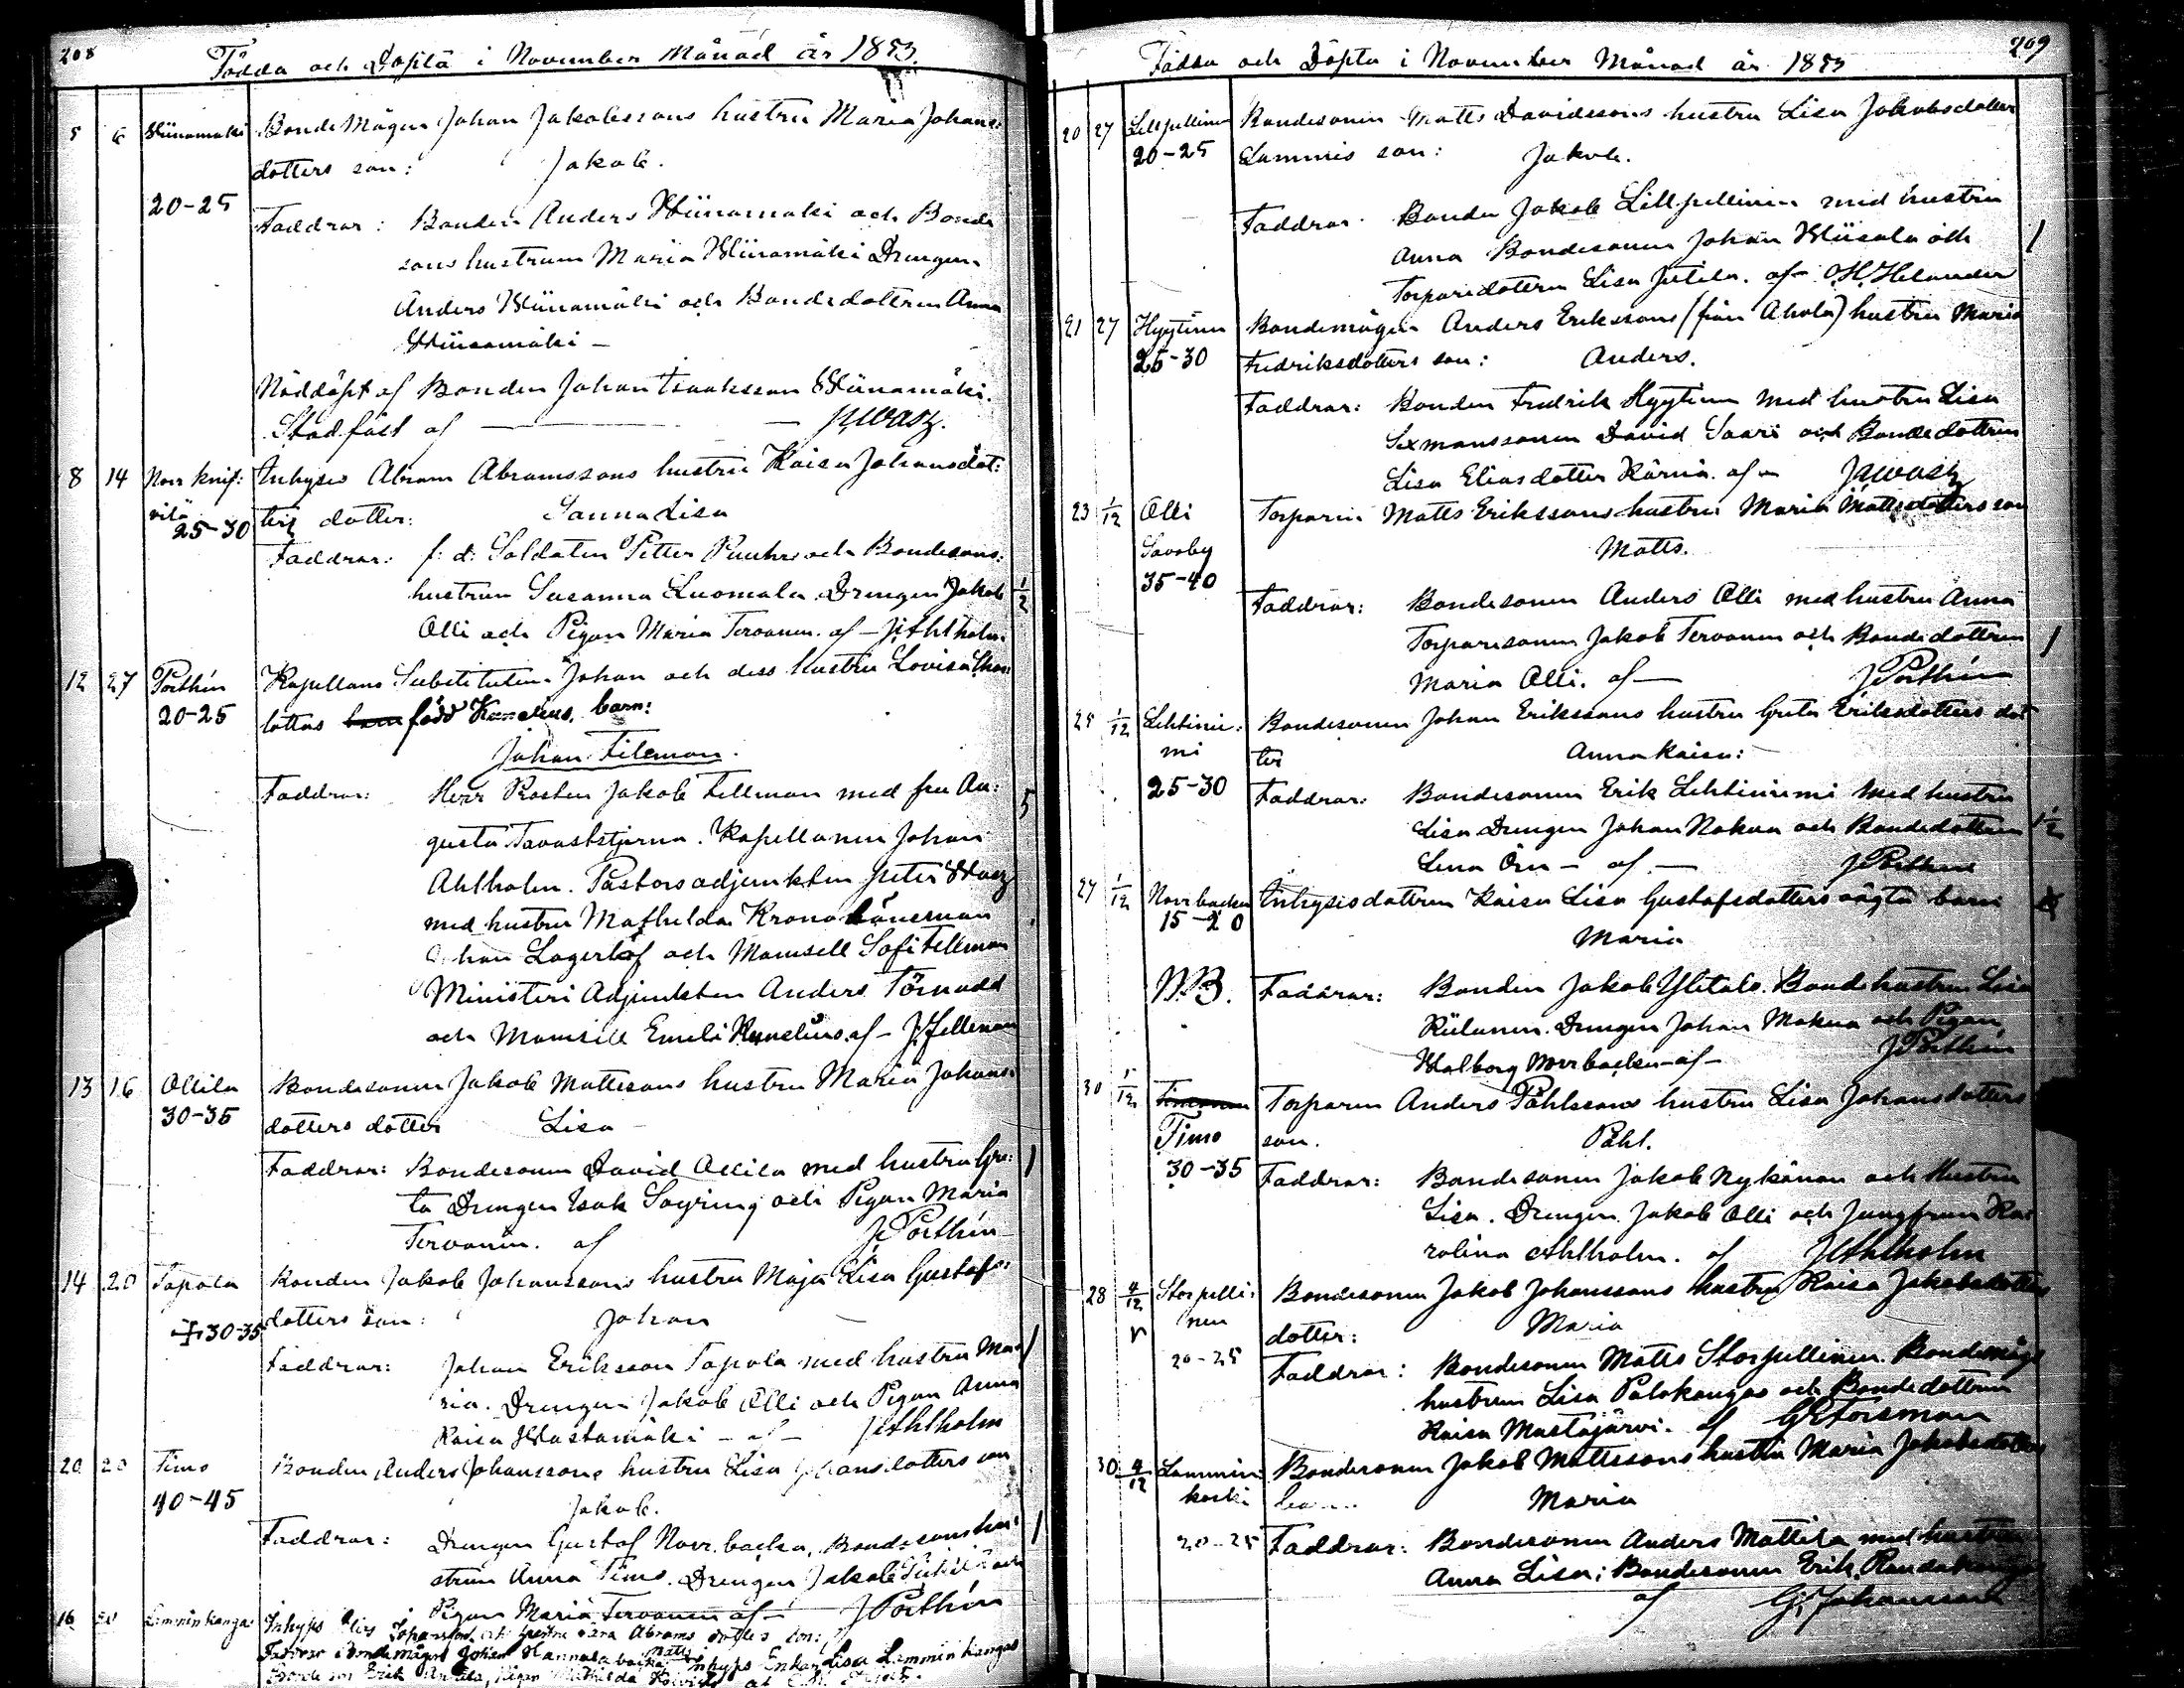 208
Födda och Döpta i November Månad år 1853.
5 6 Wiinamäki Bonde Mågen Johan Jakobssons hustru Maria Johans:
dotters son: Jakob.
20-25
Faddrar: Bonden Anders Wiinamäki och Bonde
sons hustrun Maria Wiinamäki Drengen
Anders Wiinamäki och Bondedottren Anna
Wiinamäki -
Nöddöpt af Bonden Johan Isaaksson Wiinamäki.
Stadfäst af - JWasz.
8 14 Norr knif: Inhyses Abram Abramssons hustru Kaisa Johansdot:
vilä ters dotter: Sanna Lisa
25-30
Faddrar: f: d: Soldaten Petter Puuhri och Bondesons:
hustrun Susanna Luomala. Drengen Jakob 1/2
Olli och Pigan Maria Tervonen. af - JAhlholm.
12 27 Porthén Kapellans Substituten Johan och dess hustru Lovisa Char
20-25 lottas barn född Kanelius, barn:
Johan Fileman.
Faddrar: Herr Prosten Jakob Fellman med fru Au: 5
gusta Tavaststjerna. Kapellanen Johan
Ahlholm. Pastorsadjunkten Peter Wasz
med hustru Mathilda Kronolänsman
Johan Lagerlöf och Mamsell Sofi Fellman
Ministeri Adjunkten Anders Törnudd
och Mamsell Emeli Kanelius. af - JFellman
13 16 Ollila Bondesonen Jakob Mattssons hustru Maria Johans:
30-35 dotters dotter Lisa -
Faddrar: Bondesonen David Ollila med hustru Gre: 1
ta Drengen Isak Soyring och Pigan Maria
Tervonen. af JPorthén
14 20 Tapola Bonden Jakob Johanssons hustru Maja Lisa Gustafs:
30-35 dotters son: Johan -
Faddrar: Johan Eriksson Tapola med hustru Ma 1
ria. Drengen Jakob Olli och Pigan Anna
Kaisa Wastamäki - af - JAhlholm
20 20 Timo Bonden Anders Johanssons hustru Lisa Johansdotters son
40-45 Jakob.
Faddrar: Drengen Gustaf Norrbacka. Bondesons hu: 1
strun Anna Timo. Drengen Jakob och
Pigan Maria Tervonen af - JPorthén
16 20 Lamminkangas Inhyses Johansson och hustru Abrams dotters son:
Faddrar: Bondemågen Johan Hannulabacka Inhyses Enkan Lisa Lamminkangas
Bondeson Erik Pigan Mathilda af
209
Födda och Döpta i November Månad år 1853
20 27 Lillpellinen Bondesonen Matts Davidssons hustru Lisa Jakobsdotter
20-25 Lammis son: Jakob.
Faddrar: Bonden Jakob Lillpellinen med hustru
Anna Bondesonen Johan Wiisala och 1
Torparedottren Lisa Jutila. af - OHHelander
21 27 Hyytinen Bondemågen Anders Erikssons (från Ahola) hustru Maria
25-30 Fredriksdotters son: Anders.
Faddrar: Bonden Fredrik Hyytinen med hustru Lisa
Sexmanssonen David Saari och Bondedottren
Lisa Eliasdotter Kärnä. af - JWasz
23 1/12 Olli Torparen Matts Erikssons hustru Maria Mattsdotters son
Savoby Matts.
35-40
Faddrar: Bondesonen Anders Olli med hustru Anna
Torparesonen Jakob Tervonen och Bondedottren 1
Maria Olli. af - JPorthén
25 1/12 Lehtinie: Bondesonen Johan Erikssons hustru Greta Eriksdotters dot
mi ter Anna Kaisa:
25-30 Faddrar: Bondesonen Erik Lehtiniemi med hustru
Lisa Drengen Johan Nokua och Bondedottren 1 1/2
Lena Örn - af - JPorthén
27 1/12 Norrbacka Inhysisdottren Kaisa Lisa Gustafsdotters oägta barn
15-20 Maria
N.B. Faddrar: Bonden Jakob Ylitalo. Bondehustrun Lisa
Riilanen. Drengen Johan Makua och Pigan
Walborg Norrbacka - af - JPorthén
30 1/12 Torparen Anders Påhlssons hustru Lisa Johansdotters
Timo son. Påhl.
30-35 Faddrar: Bondesonen Jakob Nykänen och Hustru
Lisa. Drengen Jakob Olli och Jungfrun Ka
rolina Ahlholm. af JAhlholm
28 4/12 Storpelli: Bondesonen Jakob Johanssons hustru Kaisa Jakobsdotters
nen dotter: Maria
20-25 Faddrar: Bondesonen Matts Storpellinen. Bondemågs
hustrun Lisa Palokangas och Bondedottren
Kaisa Mustajärvi. af GEForsman
30 4/12 Lammin Bondesonen Jakob Mattssons hustru Maria Jakobsdotters
koski Maria
20-25 Faddrar: Bondesonen Anders Mattila med hustru
Anna Lisa; Bondesonen Erik
af G. Johansson